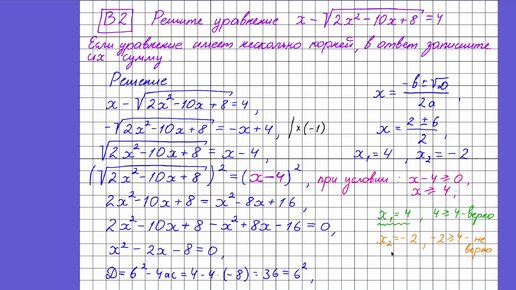 В2 Решите уравнение x - √(2x² - 10x + 8) = 4
Если уравнение имеет несколько корней, в ответ запишите
их сумму
Решение
x - √(2x² - 10x + 8) = 4,
-√(2x² - 10x + 8) = -x + 4, |x(-1)
√(2x² - 10x + 8) = x - 4,
(√(2x² - 10x + 8))² = (x - 4)², при условии: x - 4 ≥ 0,
x ≥ 4,
2x² - 10x + 8 = x² - 8x + 16,
2x² - 10x + 8 - x² + 8x - 16 = 0,
x² - 2x - 8 = 0,
D = b² - 4ac = 4 - 4·(-8) = 36 = 6²,
x = (-b ± √D)/(2a),
x = (2 ± 6)/2,
x₁ = 4, x₂ = -2
x₁ = 4, 4 ≥ 4 - верно
x₂ = -2, -2 ≥ 4 - не
верно